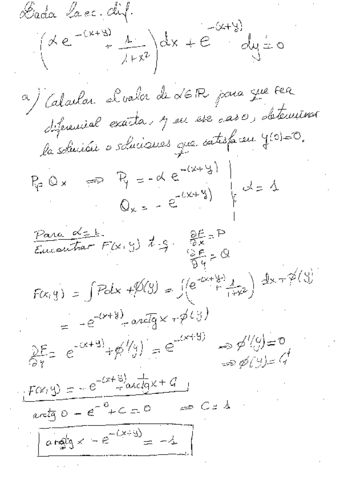 Dada la ec. dif.
(α e^{-(x+y)} + 1/(1+x²)) dx + e^{-(x+y)} dy = 0
a) Calcular el valor de α∈ℝ para que sea
diferencial exacta, y en ese caso, determinar
la solución o soluciones que satisfacen y(0)=0.
P_y = Q_x ⟹ P_y = -α e^{-(x+y)}
Q_x = - e^{-(x+y)} | α = 1
Para α=1.
Encontrar F(x,y) t.q. ∂F/∂x = P
∂F/∂y = Q
F(x,y) = ∫Pdx + φ(y) = ∫(e^{-(x+y)} + 1/(1+x²)) dx + φ(y)
= -e^{-(x+y)} + arctg x + φ(y)
∂F/∂y = e^{-(x+y)} + φ'(y) = e^{-(x+y)} ⟹ φ'(y) = 0
⟹ φ(y) = C
F(x,y) = - e^{-(x+y)} + arctg x + C
arctg 0 - e^{-0} + C = 0 ⟹ C = 1
arctg x - e^{-(x+y)} = -1